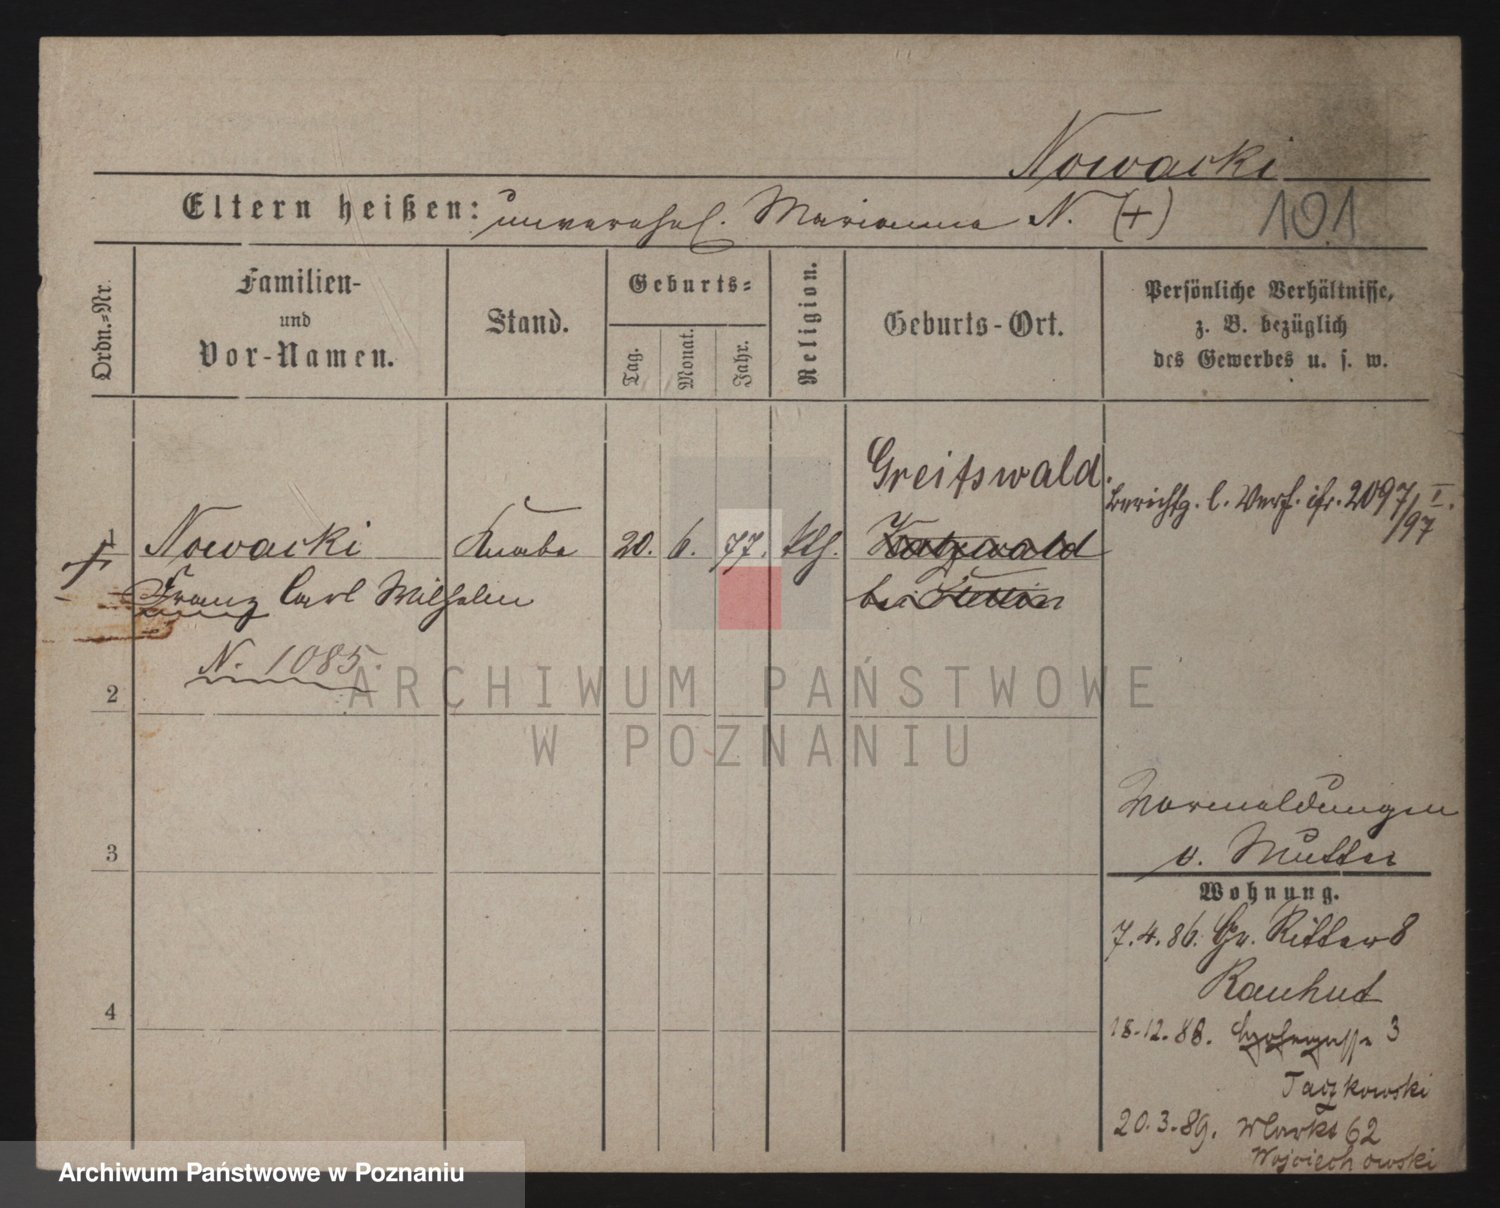 Nowacki
101
Eltern heißen: unverehel. Marianna N. (+)
Ordn.=Nr.
Familien-
und
Vor-Namen.
Stand.
Geburts=
Tag.
Monat.
Jahr.
Religion.
Geburts-Ort.
Persönliche Verhältnisse,
z. B. bezüglich
des Gewerbes u. s. w.
Greifswald.
Berichtg. l. Verf. 2097/I.
/97
1 Nowacki Knabe 20. 6. 77. kth. Katzwald
Franz Carl Wilhelm bei Stettin
N. 1085.
2
ARCHIWUM PAŃSTWOWE
W POZNANIU
Vormeldungen
3
v. Mutter
Wohnung.
7.4.86. Gr. Ritter 8
Rauhut
4
18.12.88. 3
Taczkowski
20.3.89. 62
Wojciechowski
Archiwum Państwowe w Poznaniu